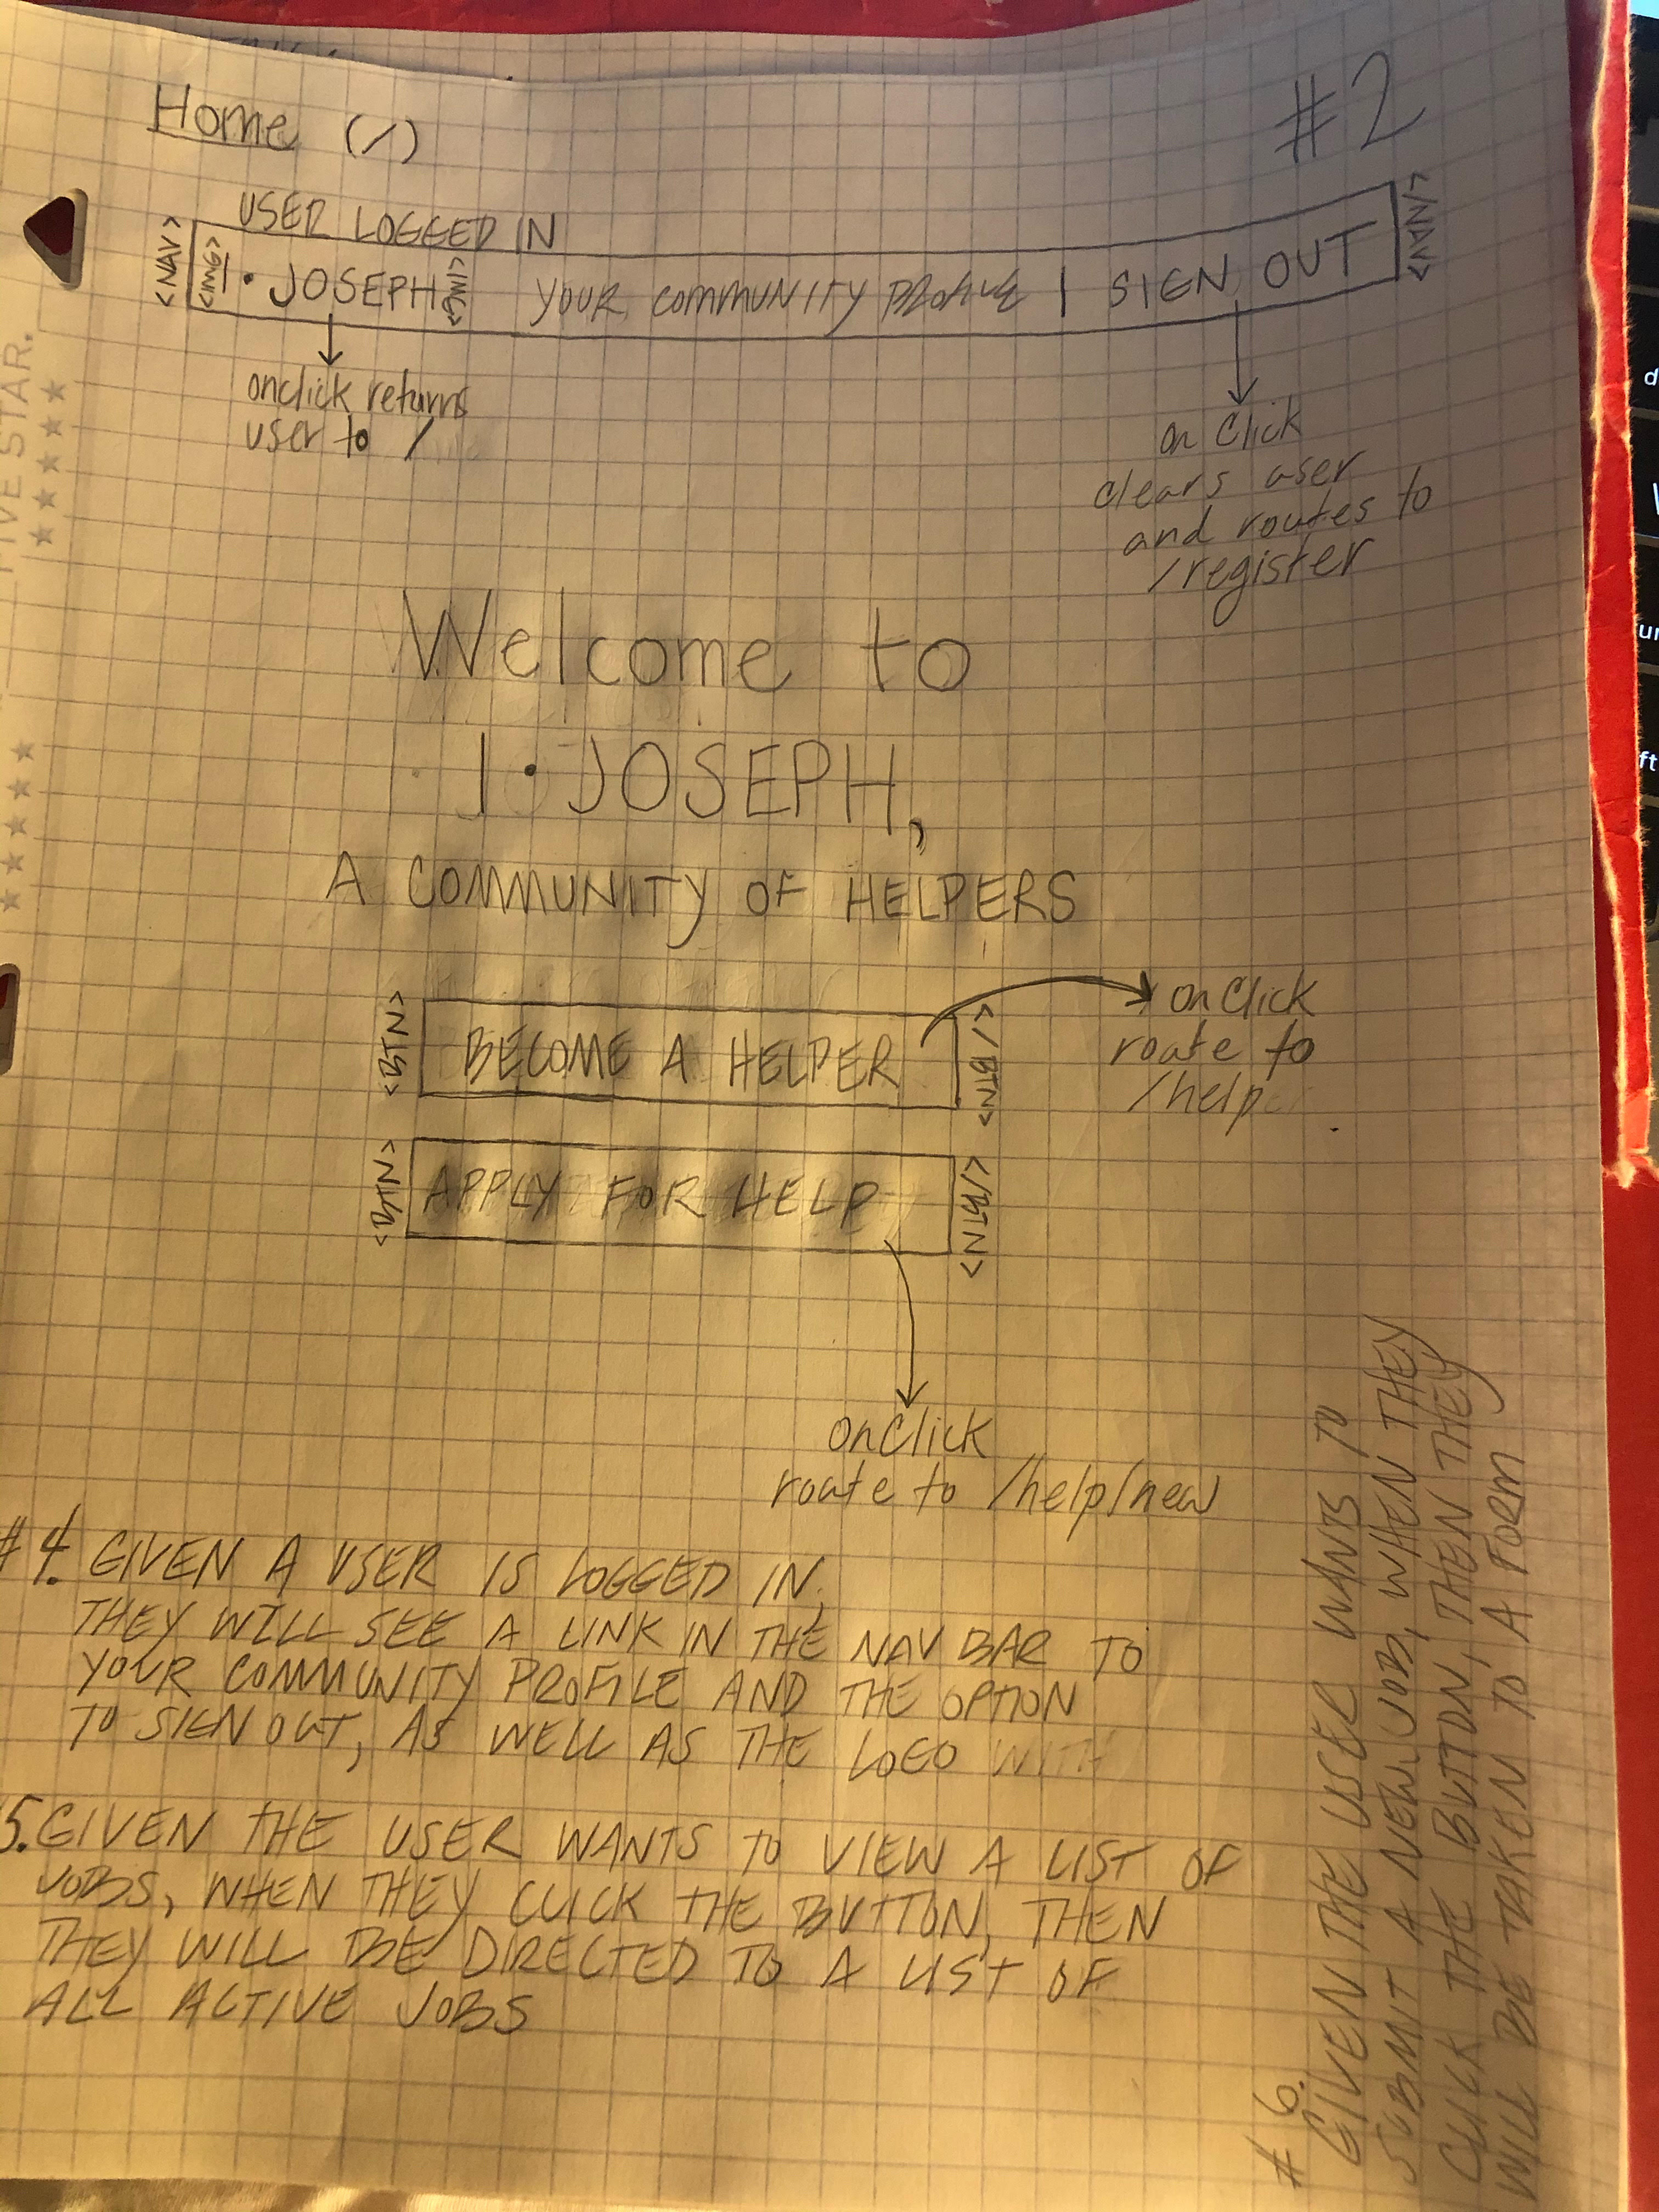 Home (/)
#2
USER LOGGED IN
<NAV> <IMG> I • JOSEPH YOUR COMMUNITY PROFILE | SIGN OUT </NAV>
onclick returns
user to /
on Click
clears user
and routes to
/register
Welcome to
I • JOSEPH,
A COMMUNITY OF HELPERS
<BTN> BECOME A HELPER </BTN>
onClick
route to
/help
<BTN> APPLY FOR HELP </BTN>
onClick
route to /help/new
#4. GIVEN A USER IS LOGGED IN,
THEY WILL SEE A LINK IN THE NAV BAR TO
YOUR COMMUNITY PROFILE AND THE OPTION
TO SIGN OUT, AS WELL AS THE LOGO WITH
5. GIVEN THE USER WANTS TO VIEW A LIST OF
JOBS, WHEN THEY CLICK THE BUTTON, THEN
THEY WILL BE DIRECTED TO A LIST OF
ALL ACTIVE JOBS
#6.
GIVEN THE USER WANTS TO
SUBMIT A NEW JOB, WHEN THEY
CLICK THE BUTTON, THEN THEY
WILL BE TAKEN TO A FORM
FIVE STAR.